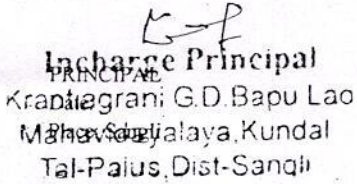 Incharge Principal
PRINCIPAL
Krantiagrani G.D.Bapu Lad
Date:
Mahavidayalaya, Kundal
Place: Sangli
Tal-Palus, Dist-Sangli